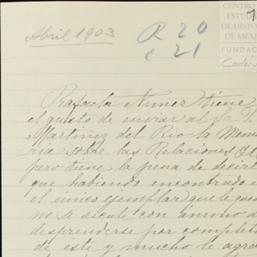 Abril 1903
R 20
c 21
CENTRO
ESTUD
DE HISTO
DE MEX
FUNDAC
Carlos
Rafaela Nuñez tiene
el gusto de enviar al Sr. D.
Martinez del Rio la Memo
ria sobre las Relaciones
pero tiene la pena de decirl
que habiendo encontrado
el único ejemplar que le
no se siente con ánimo d
desprenderse por complet
de éste y mucho le agra